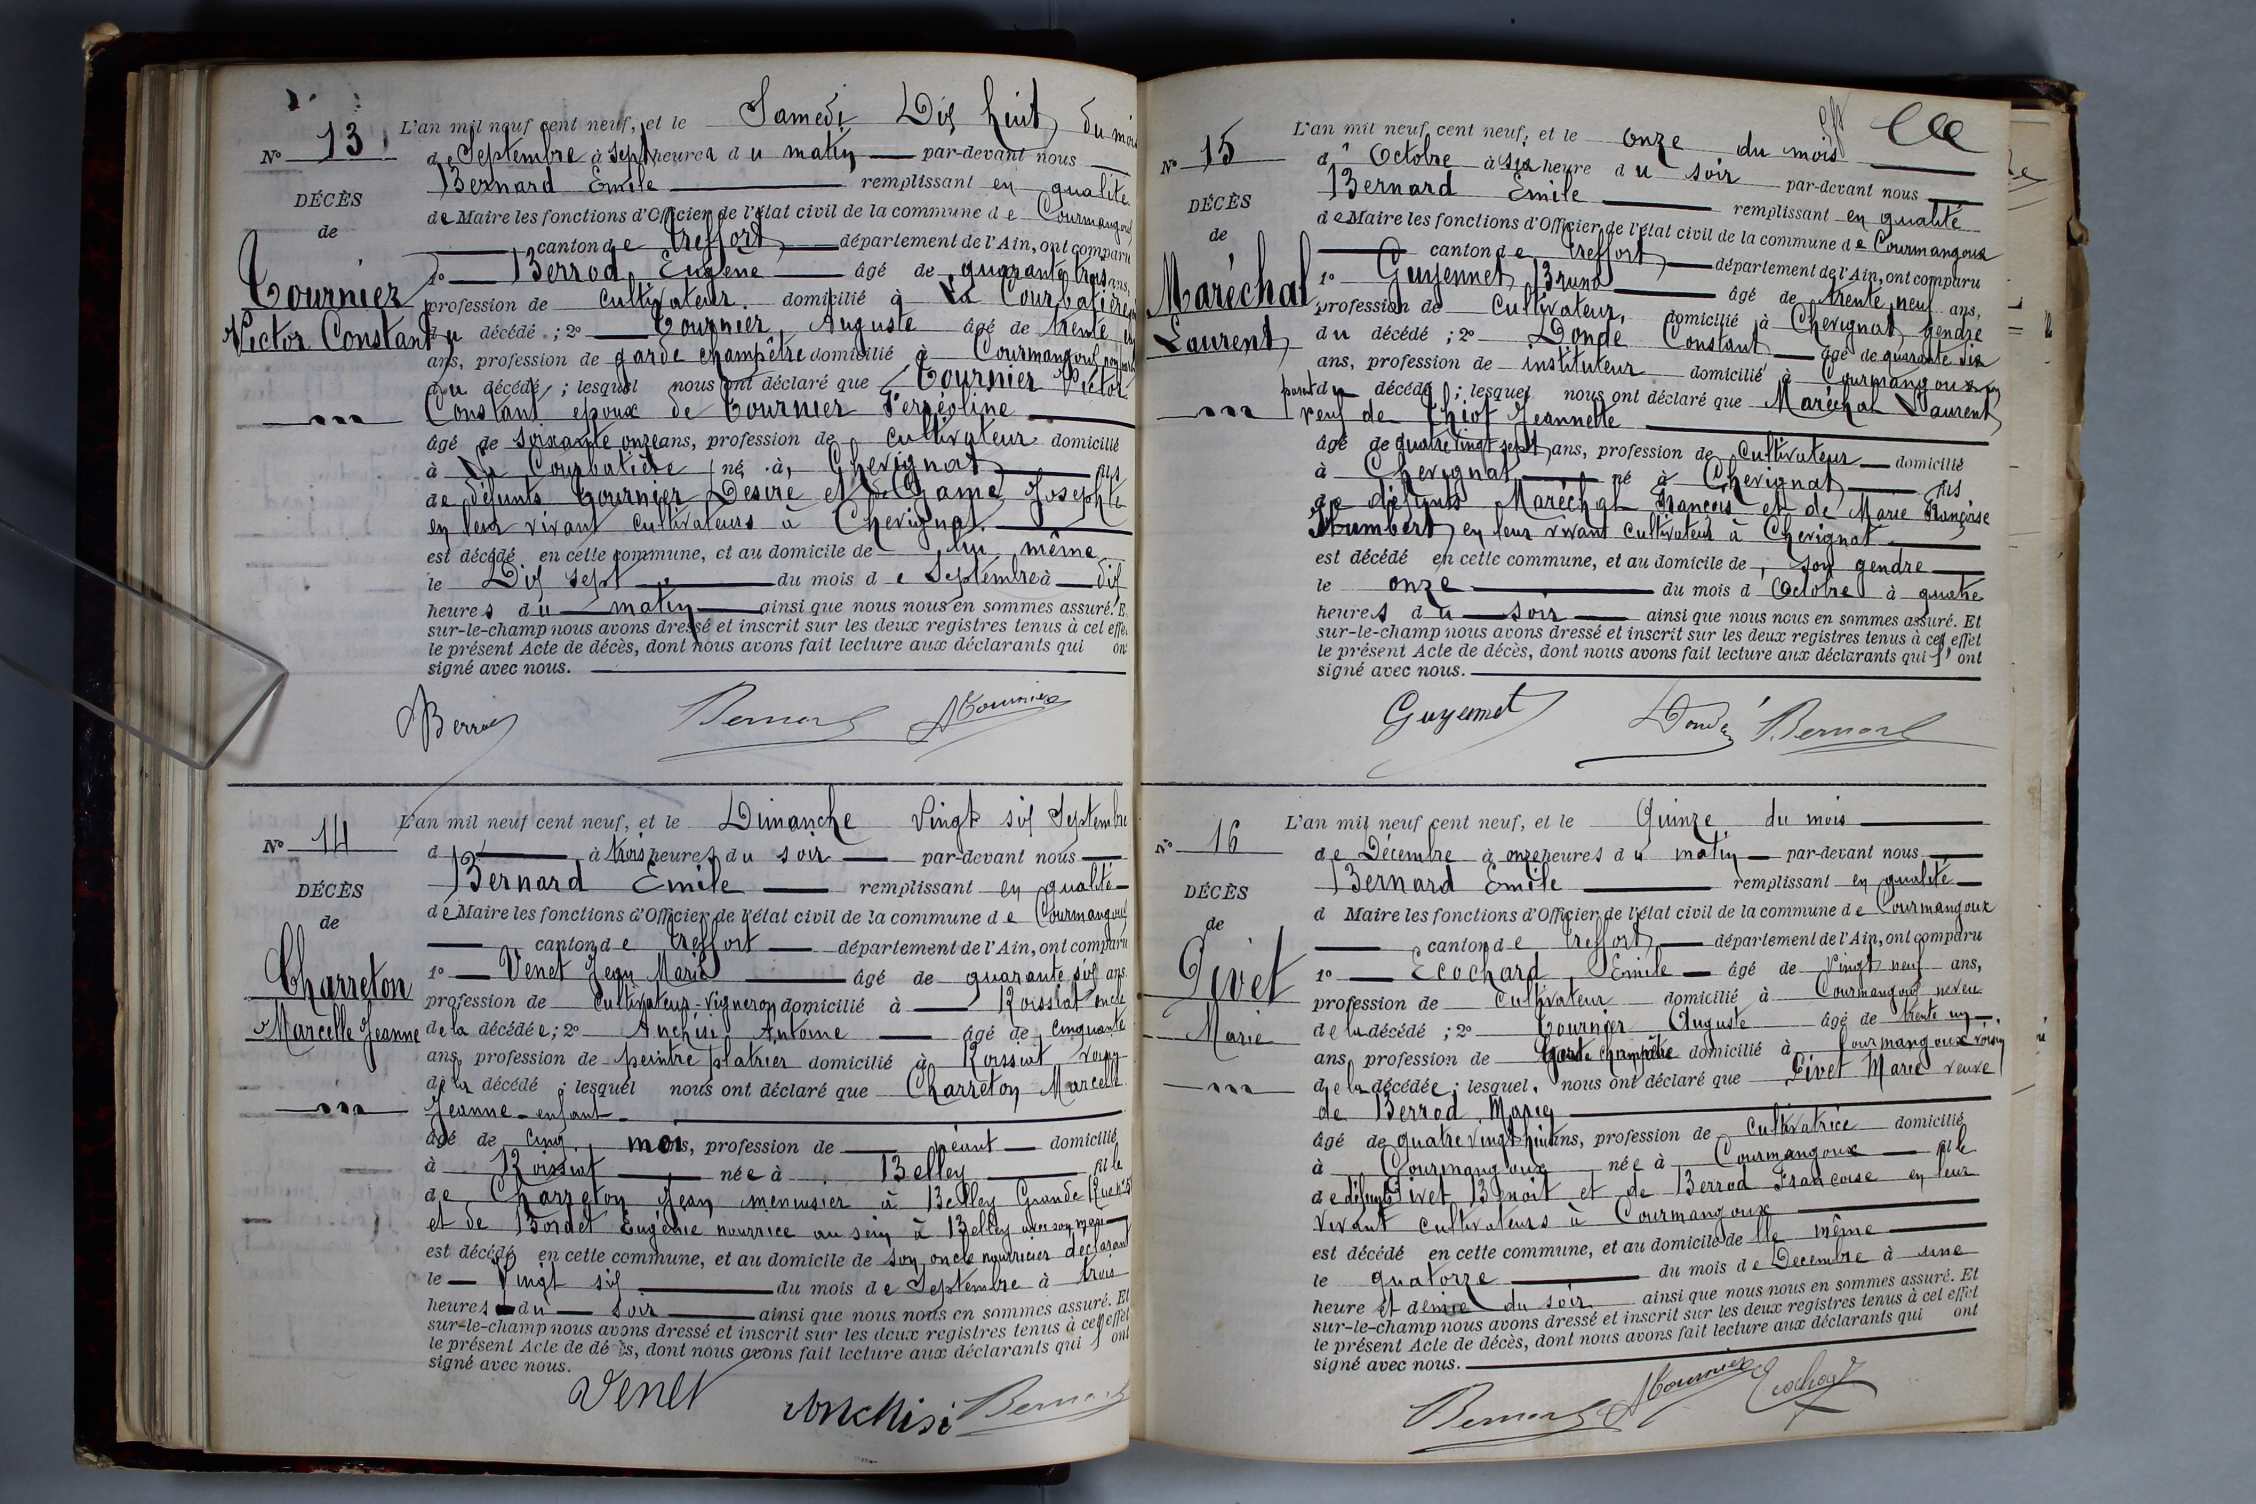 L'an mil neuf cent neuf, et le Samedi Dix huit du mois
N° 13
de Septembre à sept heures du matin par-devant nous
Bernard Emile remplissant en qualité
DÉCÈS
de Maire les fonctions d'Officier de l'état civil de la commune de Courmangoux
de
canton de Treffort département de l'Ain, ont comparu
1° Berrod Eugène âgé de quarante trois ans,
Tournier
profession de cultivateur domicilié à La Courbatière
Victor Constant
du décédé ; 2° Tournier, Auguste âgé de trente
ans, profession de garde champêtre domicilié à Courmangoux
du décédé ; lesquel nous ont déclaré que Tournier Victor
Constant époux de Tournier Ferréoline
âgé de soixante onze ans, profession de cultivateur domicilié
à La Courbatière né à Chevignat fils
de défunts Tournier Désiré et de Josephte
en leur vivant cultivateurs à Chevignat
est décédé en cette commune, et au domicile de lui même
le Dix sept du mois de Septembre à dix
heures du matin ainsi que nous nous en sommes assuré. E
sur-le-champ nous avons dressé et inscrit sur les deux registres tenus à cet effe
le présent Acte de décès, dont nous avons fait lecture aux déclarants qui on
signé avec nous.
Berrod Bernard ATournier
L'an mil neuf cent neuf, et le Dimanche Vingt six Septembre
N° 14
d à trois heures du soir par-devant nous
Bernard Emile remplissant en qualité
DÉCÈS
de Maire les fonctions d'Officier de l'état civil de la commune de Courmangoux
de
canton de Treffort département de l'Ain, ont comparu
1° Venet Jean Marie âgé de quarante six ans
Charreton
profession de cultivateur-vigneron domicilié à Roissiat oncle
Marcelle Jeanne
de la décédée ; 2° Anchisi Antoine âgé de cinquante
ans, profession de peintre platrier domicilié à Roissiat voisin
de la décédé ; lesquel nous ont déclaré que Charreton Marcelle
Jeanne enfant
âgé de cinq mois, profession de néant domicilié
à Roissiat née à Belley fille
de Charreton Jean menuisier à Belley Grande Rue
et de Bordet Eugénie nourrice au sein à Belley avec son mari
est décédé en cette commune, et au domicile de son oncle nourricier déclarant
le Vingt six du mois de Septembre à trois
heures du soir ainsi que nous nous en sommes assuré. Et
sur-le-champ nous avons dressé et inscrit sur les deux registres tenus à cet effet
le présent Acte de décès, dont nous avons fait lecture aux déclarants qui ont
signé avec nous.
Venet Anchisi Bernard
L'an mil neuf cent neuf, et le onze du mois
N° 15
d' Octobre à six heure du soir par-devant nous
Bernard Emile remplissant en qualité
DÉCÈS
de Maire les fonctions d'Officier de l'état civil de la commune de Courmangoux
de
canton de Treffort département de l'Ain, ont comparu
1° Guyennet Bruno âgé de trente neuf ans,
Maréchal
profession de cultivateur, domicilié à Chevignat gendre
Laurent
du décédé ; 2° Dondé Constant âgé de quarante six
ans, profession de instituteur domicilié à Courmangoux non
parent du décédé ; lesquel nous ont déclaré que Maréchal Laurent
veuf de Thiot Jeannette
âgé de quatre vingt sept ans, profession de cultivateur domicilié
à Chevignat né à Chevignat fils
de défunts Maréchal François et de Marie Françoise
Humbert en leur vivant cultivateurs à Chevignat
est décédé en cette commune, et au domicile de son gendre
le onze du mois d' Octobre à quatre
heures du soir ainsi que nous nous en sommes assuré. Et
sur-le-champ nous avons dressé et inscrit sur les deux registres tenus à cet effet
le présent Acte de décès, dont nous avons fait lecture aux déclarants qui ont
signé avec nous.
Guyennet Dondé Bernard
L'an mil neuf cent neuf, et le Quinze du mois
N° 16
de Décembre à onze heures du matin par-devant nous
Bernard Emile remplissant en qualité
DÉCÈS
d Maire les fonctions d'Officier de l'état civil de la commune de Courmangoux
de
canton de Treffort département de l'Ain, ont comparu
1° Ecochard Emile âgé de vingt neuf ans,
Pivet
profession de cultivateur domicilié à Courmangoux neveu
Marie
de la décédé ; 2° Tournier Auguste âgé de trente un
ans, profession de Garde champêtre domicilié à Courmangoux voisin
de la décédée ; lesquel, nous ont déclaré que Pivet Marie veuve
de Berrod
âgé de quatre vingt huit ans, profession de cultivatrice domicilié
à Courmangoux née à Courmangoux fille
de défunts Pivet Benoit et de Berrod Françoise en leur
vivant cultivateurs à Courmangoux
est décédé en cette commune, et au domicile de elle même
le quatorze du mois de Decembre à une
heure et demie du soir ainsi que nous nous en sommes assuré. Et
sur-le-champ nous avons dressé et inscrit sur les deux registres tenus à cet effet
le présent Acte de décès, dont nous avons fait lecture aux déclarants qui ont
signé avec nous.
Bernard ATournier Ecochard